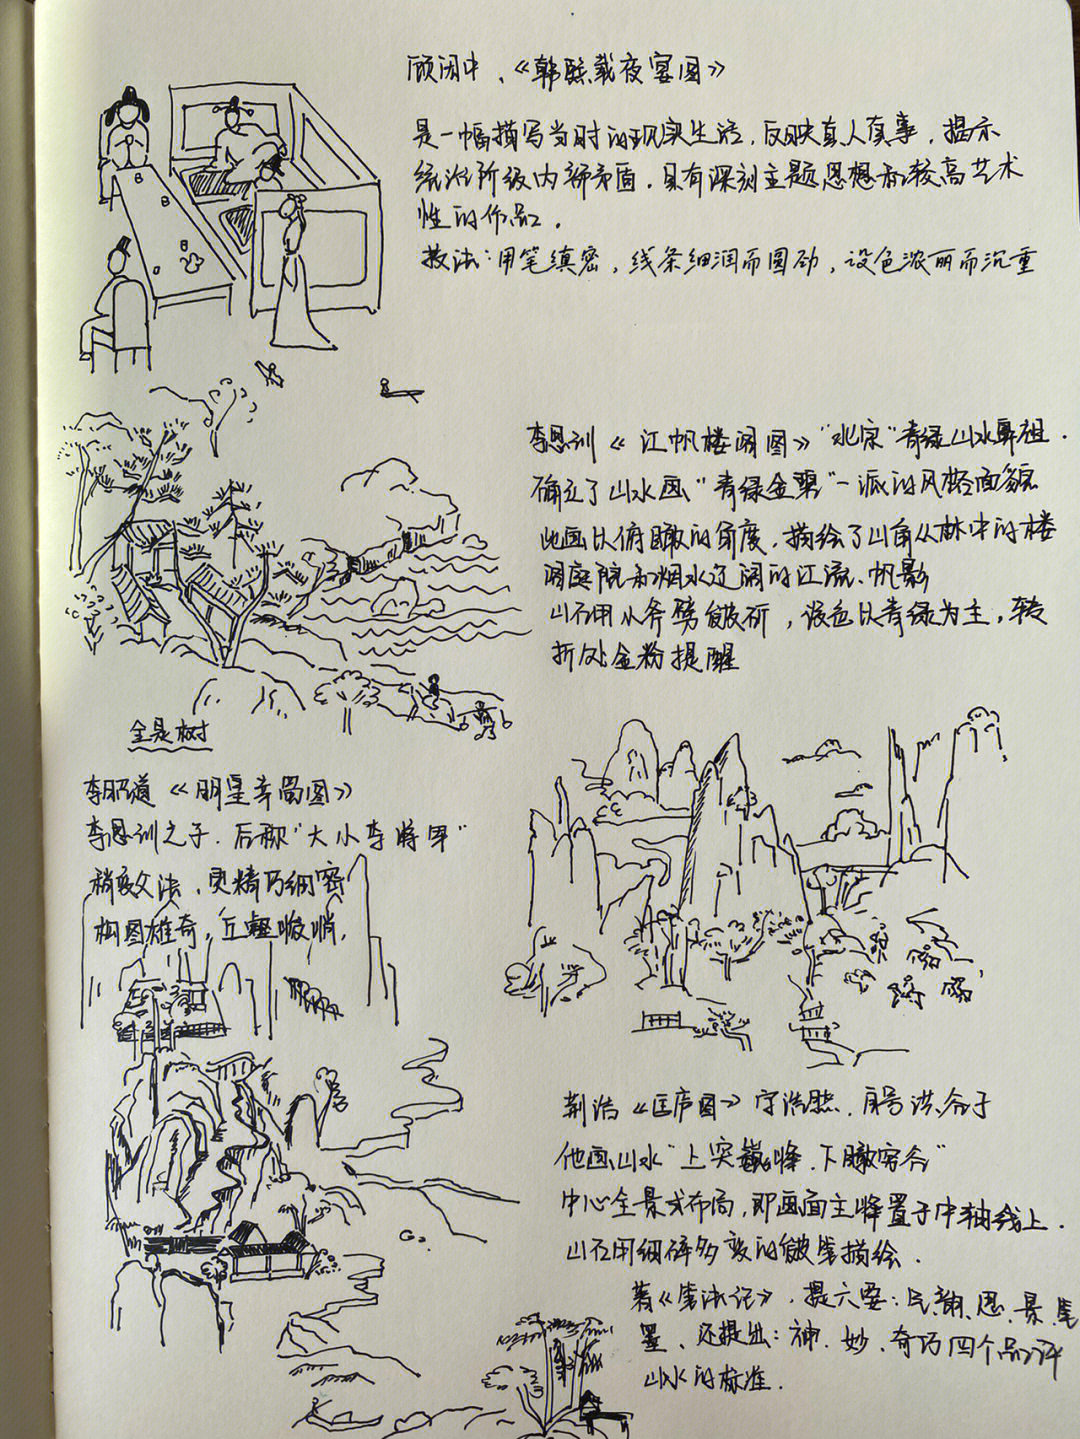 顾闳中、《韩熙载夜宴图》
是一幅描写当时的现实生活，反映真人真事，揭示
统治阶级内部矛盾，具有深刻主题思想和较高艺术
性的作品。
技法：用笔缜密，线条细润而圆劲，设色浓丽而沉重
李思训《江帆楼阁图》"北宗"青绿山水鼻祖．
确立了山水画"青绿金碧"一派的风格面貌
此画以俯瞰的角度，描绘了山角丛林中的楼
阁庭院和烟水辽阔的江流、帆影
山石用小斧劈皴斫，设色以青绿为主，转
折处金粉提醒
全是树
李昭道《明皇幸蜀图》
李思训之子．后称"大小李将军"
稍变父法，更精巧细密
构图雄奇，丘壑峻峭，
荆浩《匡庐图》字浩然．自号洪谷子
他画山水"上突巍峰，下瞰穷谷"
中心全景式布局，即画面主峰置于中轴线上．
山石用细碎多变的皴笔描绘．
著《笔法记》，提六要：气、韵、思、景、笔
墨、还提出：神．妙．奇巧四个品评
山水的标准．